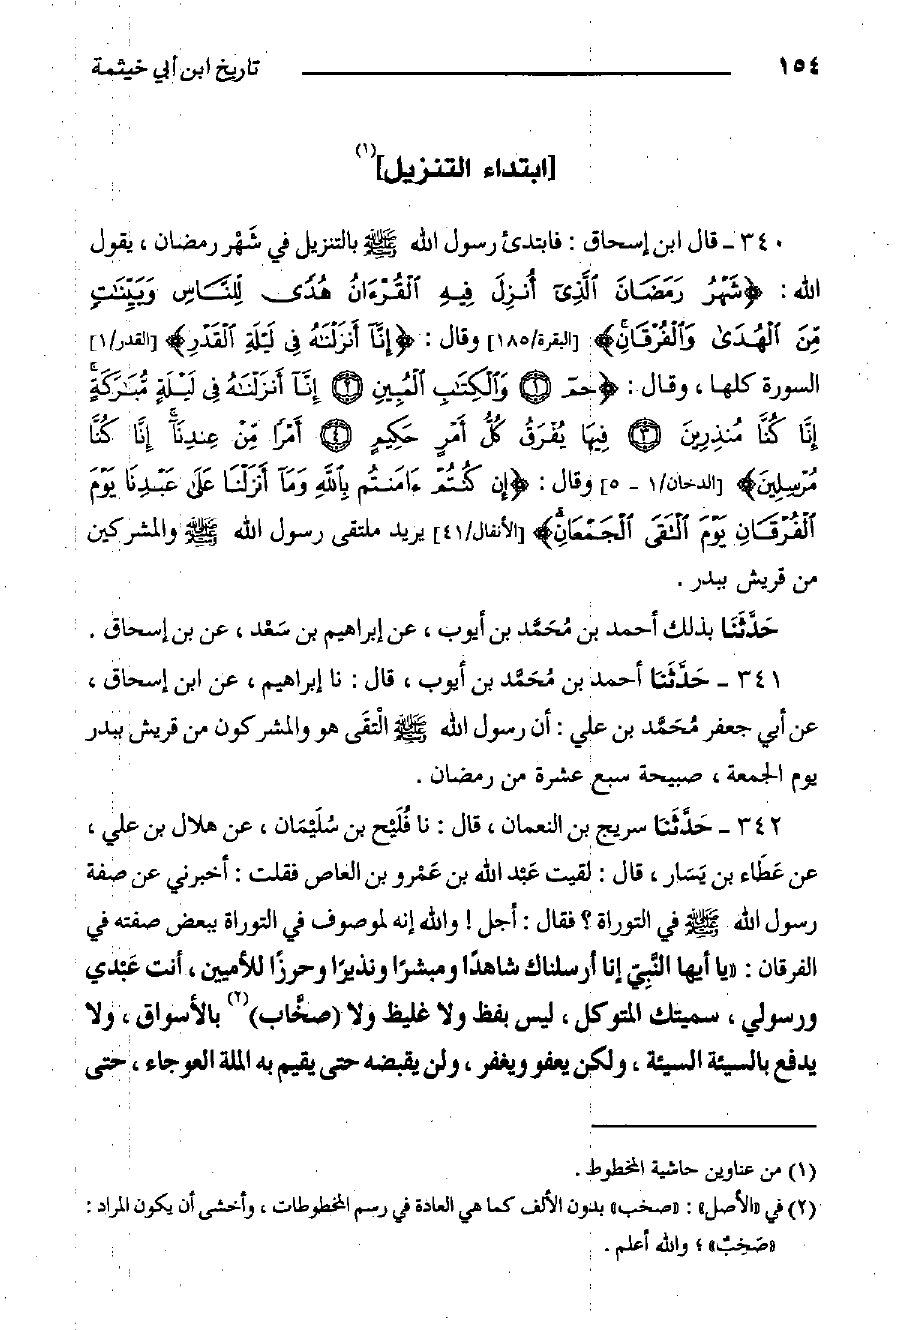 ١٥٤ تاريخ ابن أبي خيثمة
[ابتداء التنزيل](١)
٣٤٠ ـ قال ابن إسحاق : فابتدئ رسول الله ﷺ بالتنزيل في شَهْر رمضان ، يقول
الله : ﴿شَهْرُ رَمَضَانَ ٱلَّذِىٓ أُنزِلَ فِيهِ ٱلْقُرْءَانُ هُدًى لِّلنَّاسِ وَبَيِّنَٰتٍ
مِّنَ ٱلْهُدَىٰ وَٱلْفُرْقَانِۚ﴾ [البقرة/١٨٥] وقال : ﴿إِنَّآ أَنزَلْنَٰهُ فِى لَيْلَةِ ٱلْقَدْرِ﴾ [القدر/١]
السورة كلها ، وقال : ﴿حمٓ ۝١ وَٱلْكِتَٰبِ ٱلْمُبِينِ ۝٢ إِنَّآ أَنزَلْنَٰهُ فِى لَيْلَةٍ مُّبَٰرَكَةٍۚ
إِنَّا كُنَّا مُنذِرِينَ ۝٣ فِيهَا يُفْرَقُ كُلُّ أَمْرٍ حَكِيمٍ ۝٤ أَمْرًا مِّنْ عِندِنَآۚ إِنَّا كُنَّا
مُرْسِلِينَ﴾ [الدخان/١ ـ ٥] وقال : ﴿إِن كُنتُمْ ءَامَنتُم بِٱللَّهِ وَمَآ أَنزَلْنَا عَلَىٰ عَبْدِنَا يَوْمَ
ٱلْفُرْقَانِ يَوْمَ ٱلْتَقَى ٱلْجَمْعَانِۗ﴾ [الأنفال/٤١] يريد ملتقى رسول الله ﷺ والمشركين
من قريش ببدر .
حَدَّثَنَا بذلك أحمد بن مُحَمَّد بن أيوب ، عن إبراهيم بن سَعْد ، عن بن إسحاق .
٣٤١ ـ حَدَّثَنَا أحمد بن مُحَمَّد بن أيوب ، قال : نا إبراهيم ، عن ابن إسحاق ،
عن أبي جعفر مُحَمَّد بن علي : أن رسول الله ﷺ الْتقَى هو والمشركون من قريش ببدر
يوم الجمعة ، صبيحة سبع عشرة من رمضان .
٣٤٢ ـ حَدَّثَنَا سريج بن النعمان ، قال : نا فُلَيْح بن سُلَيْمَان ، عن هلال بن علي ،
عن عَطَاء بن يَسَار ، قال : لقيت عَبْد الله بن عَمْرو بن العاص فقلت : أخبرني عن صفة
رسول الله ﷺ في التوراة ؟ فقال : أجل ! والله إنه لموصوف في التوراة ببعض صفته في
الفرقان : «يا أيها النَّبِيّ إنا أرسلناك شاهدًا ومبشرًا ونذيرًا وحرزًا للأميين ، أنت عَبْدي
ورسولي ، سميتك المتوكل ، ليس بفظ ولا غليظ ولا (صخَّاب)(٢) بالأسواق ، ولا
يدفع بالسيئة السيئة ، ولكن يعفو ويغفر ، ولن يقبضه حتى يقيم به الملة العوجاء ، حتى
(١) من عناوين حاشية المخطوط .
(٢) في «الأصل» : «صخب» بدون الألف كما هي العادة في رسم المخطوطات ، وأخشى أن يكون المراد :
«صَخِبٌ» ؛ والله أعلم .